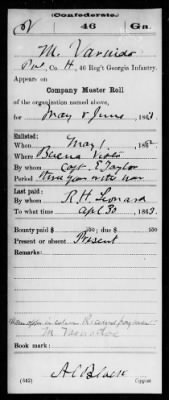 Confederate.
46 Ga.
M.
Pvt, Co. H, 46 Reg't Georgia Infantry.
Appears on
Company Muster Roll
of the organization named above,
for May & June, 1863.
Enlisted:
When May 1, 186
Where Buena Vista
By whom Capt E Taylor
Period three years or the war
Last paid:
By whom R. H. Leonard
To what time Apl 30, 1863.
Bounty paid $ 100; due $ 100
Present or absent Present
Remarks:
Received payment
M.
Book mark:
(642) Copyist.